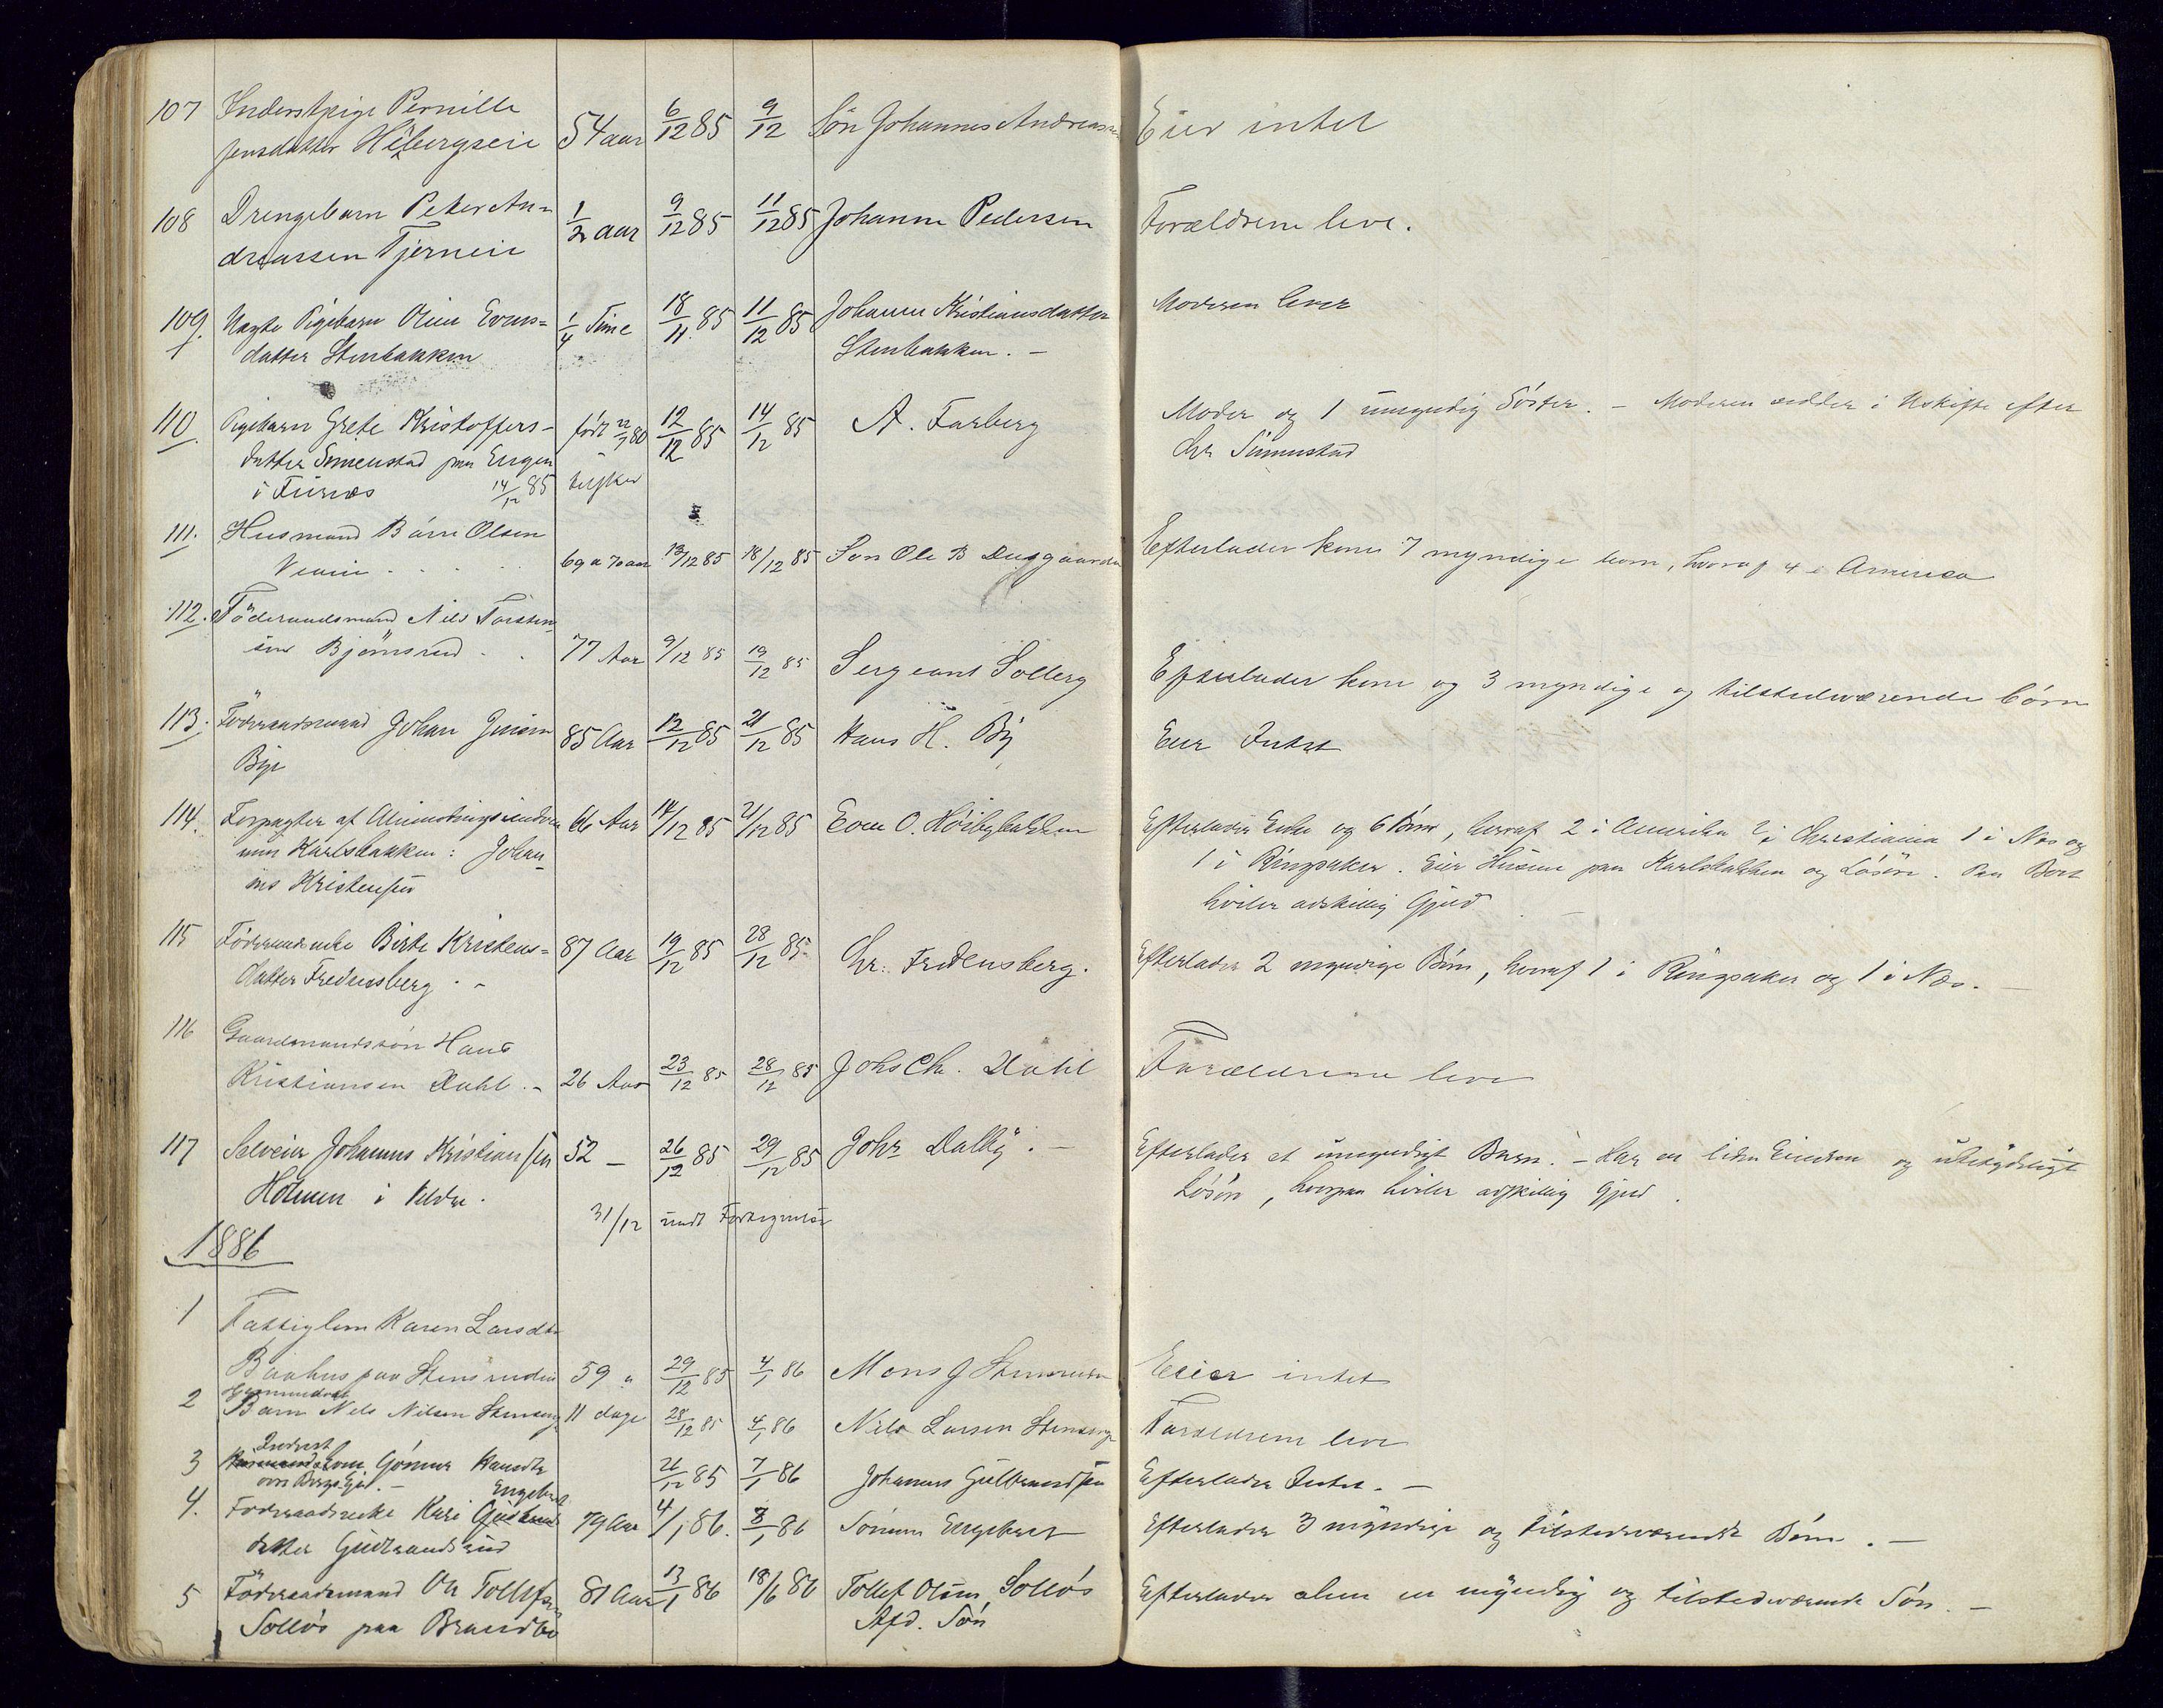 107 Inderstpige Pernille
Jensdatter Hibergseie 54 aar 6/12 85 9/12 Sön Johannes Andreassen Eier intet
108 Drengebarn Peter An=
dreassen Tjerneie 1/2 aar 9/12 85 11/12 85 Johanne Pedersen Forældrene leve.
109. Uægte Pigebarn Oline Evens=
datter Stenbakken 1/4 Time 18/11. 85 11/12 85 Johanne Kristiansdatter
Stenbakken. – Moderen lever
110. Pigebarn Grete Kristoffers-
datter Simenstad paa Engen
i Furnæs 14/12 85 født 22/7 80 12/12 85 14/12 85 A. Farberg
Moder og 1 umyndig Söster. – Moderen sidder i Uskifte efter
Chr Simenstad
111. Husmand Börre Olsen
69 a 70 aar 13/12 85 18/12 85 Søn Ole B Dusgaarden Efterlader kone 7 myndige børn, hvoraf 4 i America
112. Föderaadsmand Nils Torsten
sen Björnsrud 77 Aar 9/12 85 19/12 85 Sergeant Solberg Efterlader kone og 3 myndige og tilstedværende börn
113. Föderaadsmand Johan Jensen
Bye 85 Aar 12/12 85 21/12 85 Hans H. By Eier Intet
114. Forpagter af Almenningseiendom
men Karlsbakken: Johan
nes Kristensen 66 Aar 14/12 85 21/12 85 Even O. Höibybakken
Efterlader Enke og 6 Börn, hvoraf 2 i Amerika 2 i Christiania 1 i Næs og
1 i Ringsaker. Eier Husene paa Karlsbakken og Lösöre. Paa Boet
hviler adskillig Gjeld
115 Föderaadsenke Birte Kristens=
datter Fredensberg 87 Aar 19/12 85 28/12 85 Chr. Fredensberg. Efterlader 2 myndige Börn, hvoraf 1 i Ringsaker og 1 i Næs. –
116 Gaardmandssön Hans
Kristiansen Dahl. – 26 Aar 23/12 85 28/12 85 Johs Ch. Dahl Forældrene leve
117 Selveier Johannes Kristiansen
Holmen i Veldre. 52 – 26/12 85 29/12 85 Johs Dalby. –
Efterlader et umyndigt Barn. – Har en liden Eiendom og ubetydeligt
Lösöre, hvorpaa hviler adskillig Gjeld.
31/12 sendt Fortegnelse
1886
1 Fattiglem Karen Larsdtr
Baahus paa Stensruden 59 " 29/12 85 4/1 86 Mons J Stensruden Eeier intet
2 Barn Nils Nilsen Stenseng 11 dage 28/12 85 4/1 86 Nils Larsen Stenseng Forældrene leve
3 Inderst
kone Gönner Hansdtr 26/12 85 7/1 86 Johannes Gulbrandsen Efterlader Intet. –
Engebret
4. Föderaadsenke Kari Gudbrands
datter Gudbrandsrud 79 Aar 4/1 86. 8/1 86 Simen Engebret Efterlader 3 myndige og tilstedeværende Börn. –
5 Föderaadsmand Ole Tollefsen
Sollös paa Brandbo 81 Aar 13/1 86 18/6 86 Tollef Olsen Sollös
Afd. Sön Efterlader alene en myndig og tilstedværende Sön. –